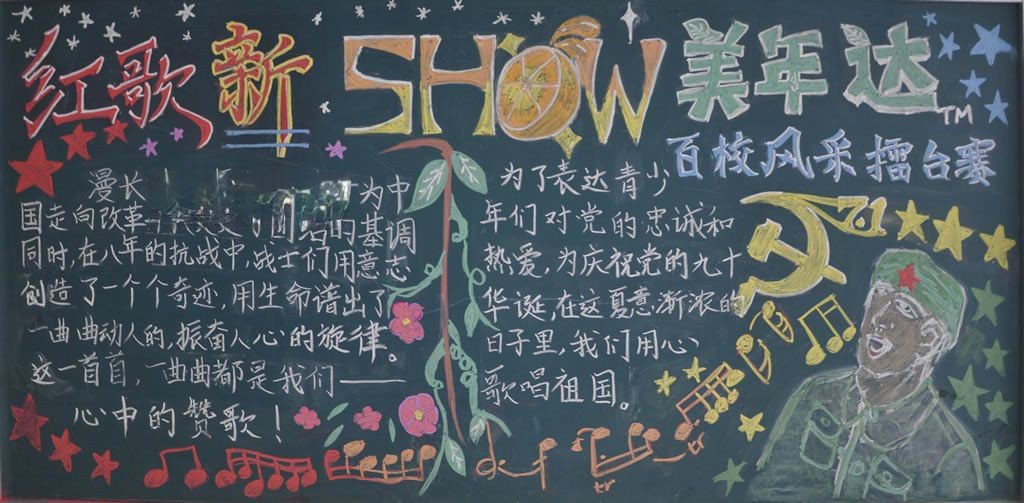 红歌新SHOW美年达TM
百校风采擂台赛
漫长 为中
国走向改革 的基调
同时,在八年的抗战中,战士们用意志
创造了一个个奇迹,用生命谱出了
一曲曲动人的,振奋人心的旋律。
这一首首,一曲曲都是我们——
心中的赞歌!
为了表达青少
年们对党的忠诚和
热爱,为庆祝党的九十
华诞,在这夏意渐浓的
日子里,我们用心
歌唱祖国。
tr
tr